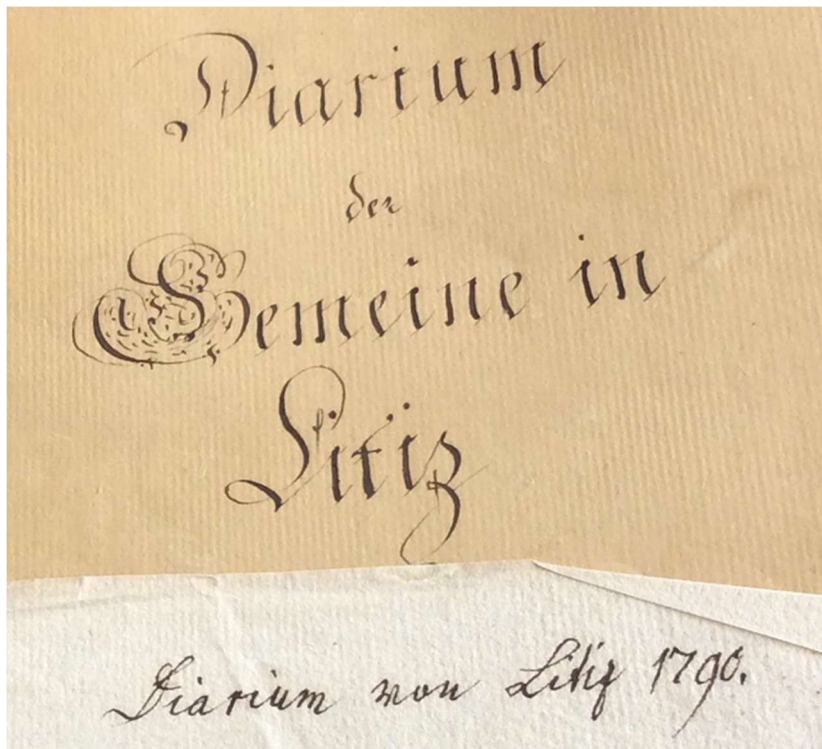 Diarium
der
Gemeine in
Litiz
Diarium von Litiz 1790.